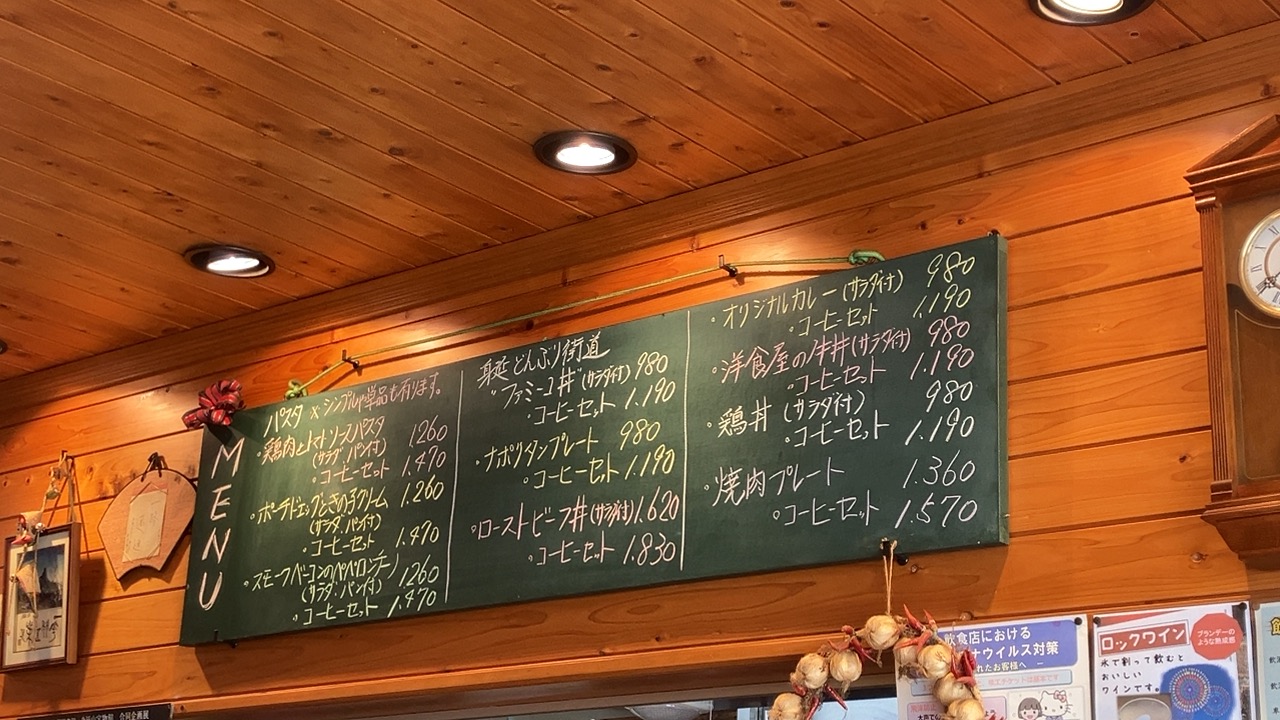 MENU
パスタ ※シンプルな単品も有ります。
・鶏肉とトマトソースパスタ 1260
(サラダ、パン付)
・コーヒーセット 1.470
・ポーチドエッグときの子クリーム 1.260
(サラダ、パン付)
・コーヒーセット 1.470
・スモークベーコンのペペロンチーノ
(サラダ、パン付) 1260
・コーヒーセット 1.470
身延どんぶり街道
・ファミー丼(サラダ付) 980
・コーヒーセット 1.190
・ナポリタンプレート 980
・コーヒーセット 1.190
・ローストビーフ丼(サラダ付) 1.620
・コーヒーセット 1.830
・オリジナルカレー(サラダ付) 980
・コーヒーセット 1.190
・洋食屋の牛丼(サラダ付) 980
・コーヒーセット 1.190
・鶏丼(サラダ付) 980
・コーヒーセット 1.190
・焼肉プレート 1.360
・コーヒーセット 1.570
飲食店における
ナウイルス対策
れたお客様へ
ロックワイン
ブランデーの
ような熟成感
氷で割って飲むと
おいしい
ワインです。
合同企画展